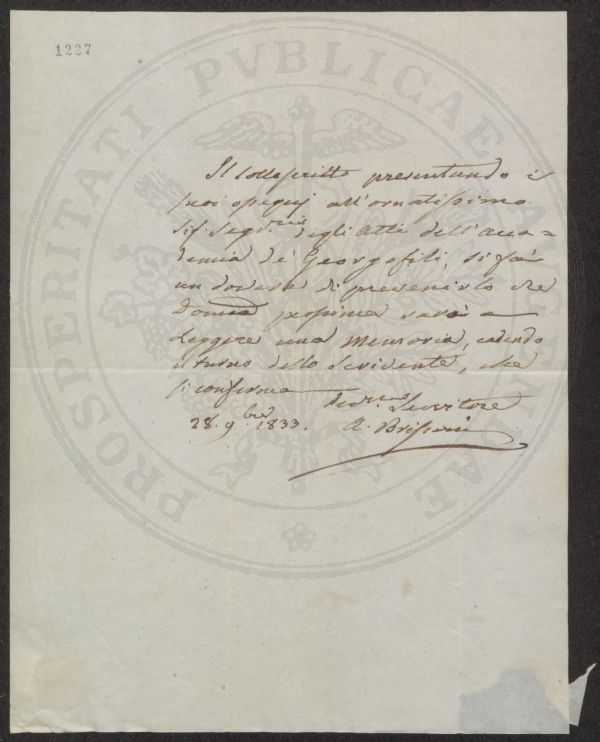 1227
PROSPERITATI PVBLICAE AVGENDAE
Il sottoscritto presentando i
suoi ossequj all'ornatissimo
Sig. Segr.rio degli Atti dell'acca=
demia de' Georgofili, si fà
un dovere di prevenirlo che
Domca prossima sarà a
Leggere una Memoria, cadendo
il turno dello Scrivente, che
si conferma
Servitore
28. 9bre 1833.